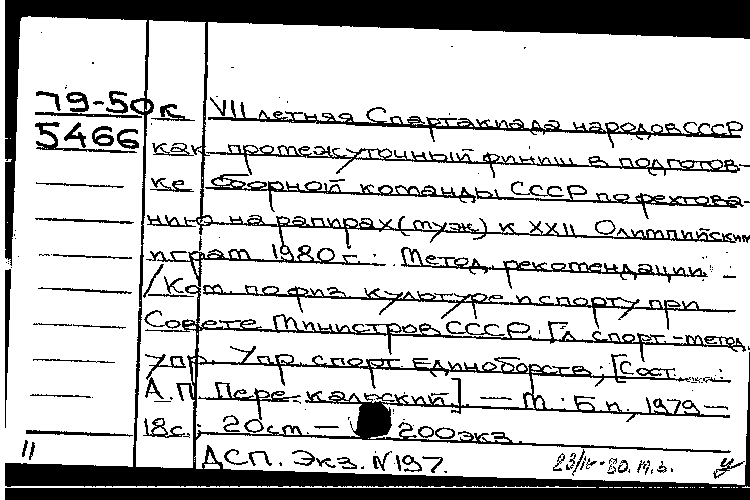 79-50к VII летняя Спартакиада народов СССР
5466 как промежуточный финиш в подготов-
ке сборной команды СССР по фехтова-
нию на рапирах (муж) к XXII Олимпийским
играм 1980 г.: Метод. рекомендации
/Ком. по физ. культуре и спорту при
Совете Министров СССР. Гл. спорт.-метод.
упр. Упр. спорт. единоборств; [Сост.:
А.П. Пере-кальский]. — М.: Б.и., 1979 —
18с.; 20см. — 200экз.
11 ДСП. Экз. N197.